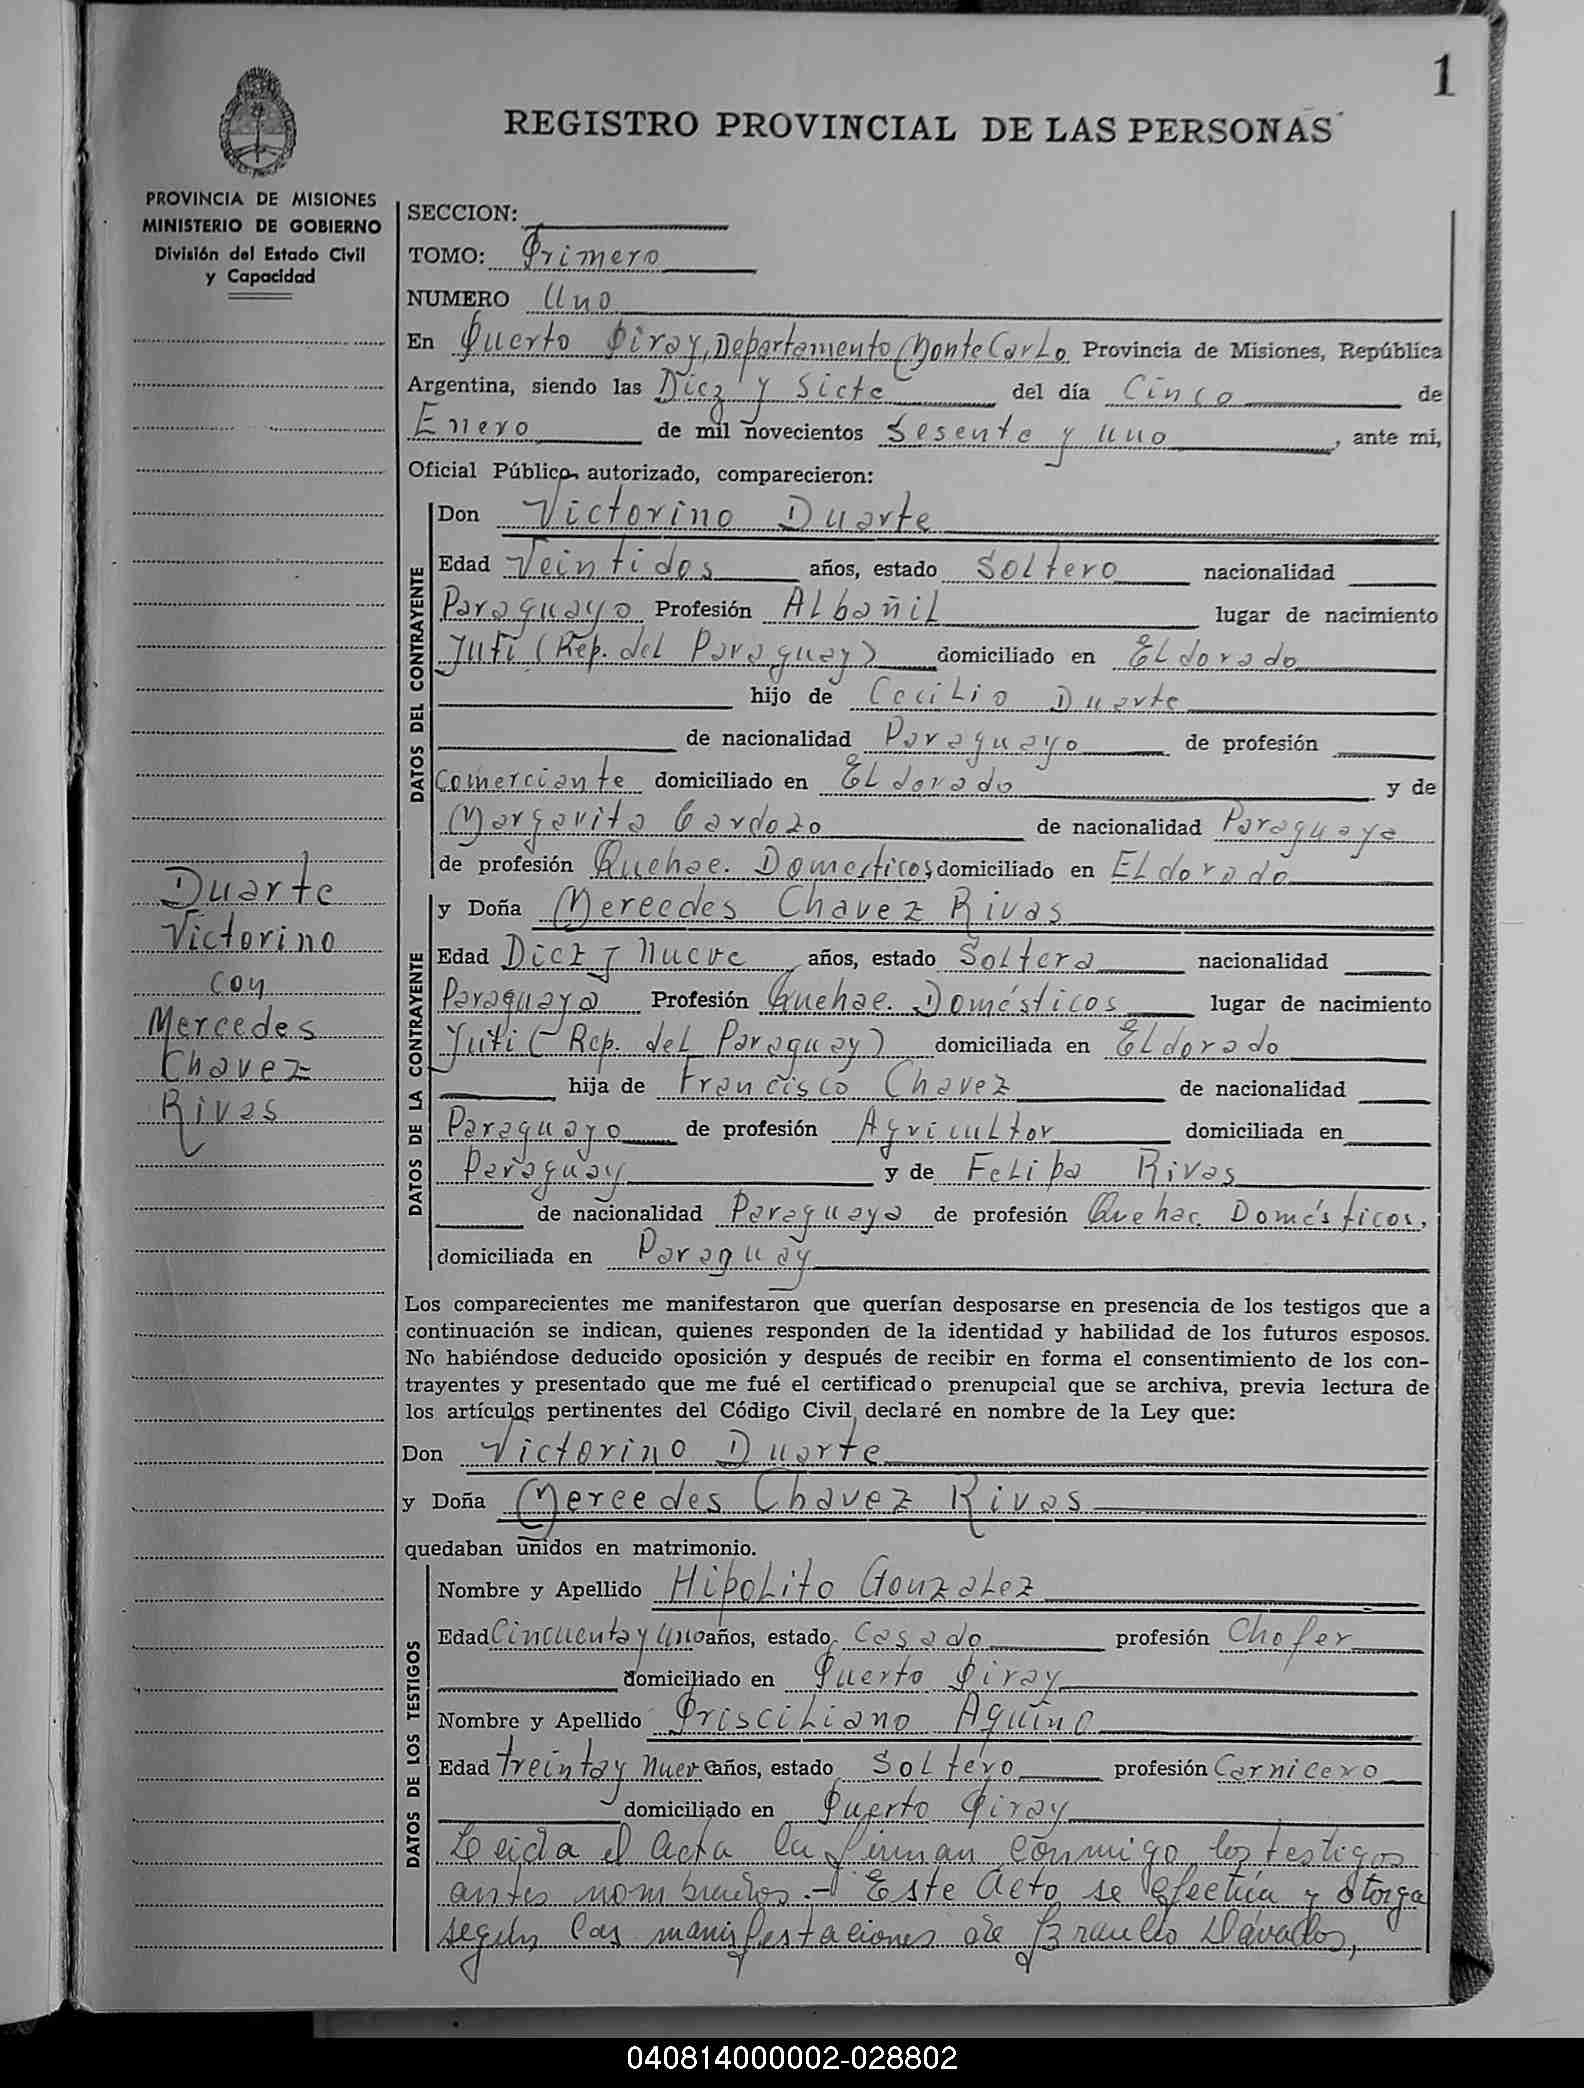 1
REGISTRO PROVINCIAL DE LAS PERSONAS
PROVINCIA DE MISIONES
MINISTERIO DE GOBIERNO
División del Estado Civil
y Capacidad
SECCION:
TOMO: Primero
NUMERO Uno
En Puerto Piray, Departamento MonteCarlo Provincia de Misiones, República
Argentina, siendo las Diez y Siete del día Cinco de
Enero de mil novecientos Sesenta y uno, ante mí,
Oficial Público, autorizado, comparecieron:
DATOS DEL CONTRAYENTE
Don Victorino Duarte
Edad Veintidos años, estado Soltero nacionalidad
Paraguayo Profesión Albañil lugar de nacimiento
Yuti (Rep. del Paraguay) domiciliado en Eldorado
hijo de Cecilio Duarte
de nacionalidad Paraguayo de profesión
Comerciante domiciliado en Eldorado y de
Margarita Cardozo de nacionalidad Paraguaya
de profesión Quehac. Domesticos domiciliado en Eldorado
Duarte
Victorino
con
Mercedes
Chavez
Rivas
DATOS DE LA CONTRAYENTE
y Doña Mercedes Chavez Rivas
Edad Diez y Nueve años, estado Soltera nacionalidad
Paraguaya Profesión Quehac. Domésticos lugar de nacimiento
Yuti (Rep. del Paraguay) domiciliada en Eldorado
hija de Francisco Chavez de nacionalidad
Paraguayo de profesión Agricultor domiciliada en
Paraguay y de Felipa Rivas
de nacionalidad Paraguaya de profesión Quehac. Domésticos,
domiciliada en Paraguay
Los comparecientes me manifestaron que querían desposarse en presencia de los testigos que a
continuación se indican, quienes responden de la identidad y habilidad de los futuros esposos.
No habiéndose deducido oposición y después de recibir en forma el consentimiento de los con-
trayentes y presentado que me fué el certificado prenupcial que se archiva, previa lectura de
los artículos pertinentes del Código Civil, declaré en nombre de la Ley que:
Don Victorino Duarte
y Doña Mercedes Chavez Rivas
quedaban unidos en matrimonio.
DATOS DE LOS TESTIGOS
Nombre y Apellido Hipolito Gonzalez
Edad Cincuenta y Uno años, estado Casado profesión Chofer
domiciliado en Puerto Piray
Nombre y Apellido Prisciliano Aquino
Edad treinta y nueve años, estado Soltero profesión Carnicero
domiciliado en Puerto Piray
Leida el acta la firman conmigo los testigos
antes nombrados.- Este Acto se efectúa y otorga
según las manifestaciones de Braulio Dávalos,
040814000002-028802